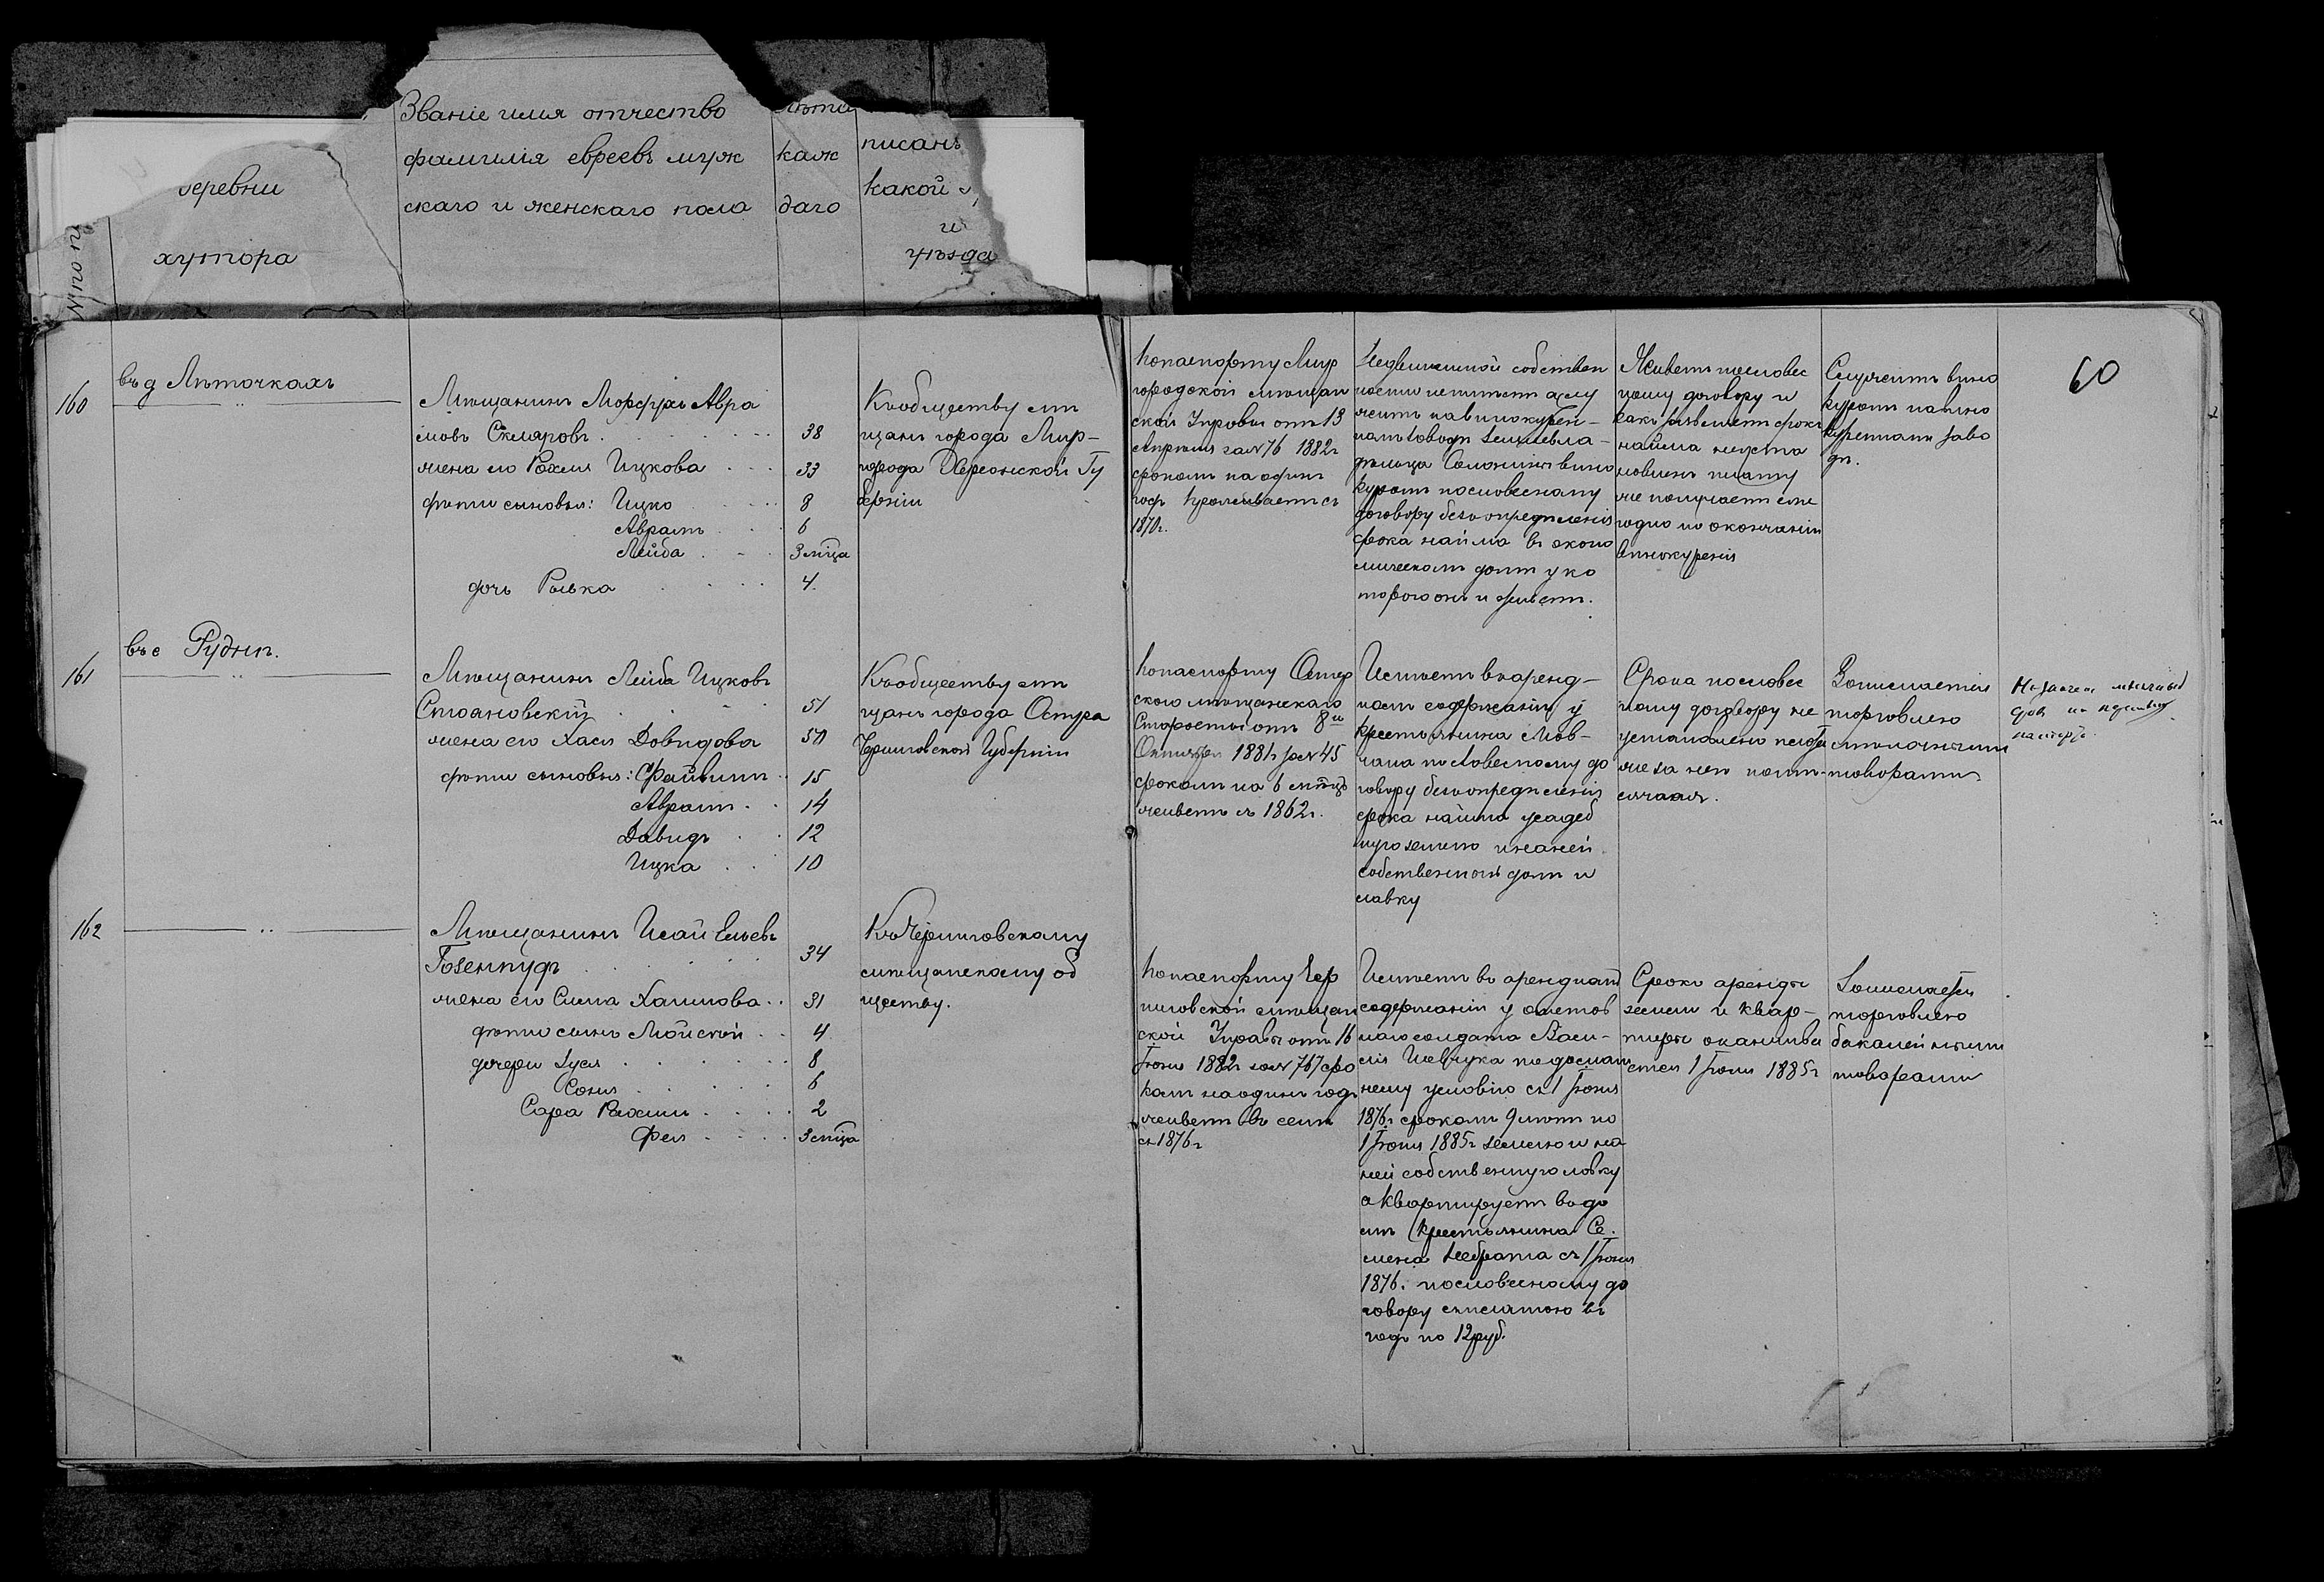 Званіе имя отчество
фамилія евреевъ муж
скаго и женскаго пола
Лѣта
каж
даго
писанъ
какой
и
уѣзда
деревни
хутора
№ по
160
въ д Лѣточкахъ
Мѣщанинъ Мордухъ Авра
мовъ Скляровъ 38
жена его Рохля Ицкова 33
дѣти сыновья: Ицко 8
Аврамъ 6
Лейба 3 мѣца
дочь Ривка 4.
Къ обществу мѣ
щанъ города Мир-
города Херсонской Гу
берніи
По паспорту Мир
городской мѣщан
ской Управы отъ 13
Апрѣля за № 76 1882г
срокомъ на одинъ
годъ проживаетъ съ
1870г.
Недвижимой собствен
ности не имѣетъ а слу
житъ на винокурен-
номъ заводѣ землевла-
дѣльца Солонины вино
куромъ по словесному
договору безъ опредѣленія
срока найма въ эконо
мическомъ домѣ у ко
тораго онъ и живетъ.
Живетъ по словес
ному договору и
какъ
найма не уста
новленъ плату
же получаетъ еже
годно по окончаніи
винокуренія
Служитъ вино
куромъ на вино
куренномъ заво
дѣ.
60
161
въ с Руднѣ.
Мѣщанинъ Лейба Ицковъ
Стояновскій 51
жена его Хася Довидова 50
дѣти сыновья: Файвишъ 15
Аврамъ 14
Давидъ 12
Ицка 10
Къ обществу мѣ
щанъ города Остра
Черниговской Губерніи
По паспорту Остер
скаго мѣщанскаго
Старосты отъ 8го
Октября 1881г за № 45
срокомъ на 6 мѣсцъ
живетъ съ 1862г.
Имѣетъ въ аренд-
номъ содержаніи у
крестьянина Мов-
чана по словесному до
говору безъ опредѣленія
срока найма усадеб
ную землю и на ней
собственный домъ и
лавку
Срока по словес
ному договору не
установлено
же за нею
Занимается
торговлею
мѣлочными
товарами
162
Мѣщанинъ Исай Ельевъ
Гозенпудъ 34
жена его Сима Хаимова 31
дѣти сынъ Мойсей 4
дочери Зуся 8
Соня 6
Сара Рахиль 2
Фея 3 мѣца
Къ Черниговскому
мѣщанскому об
ществу.
По паспорту Чер
ниговской мѣщан
ской Управы отъ 16
Іюня 1882г за № 767 сро
комъ на одинъ годъ
живетъ въ селѣ
съ 1876г
Имѣетъ въ арендномъ
содержаніи у отстав
наго солдата Васи-
лія Шевчука по домаш
нему условію съ 1 Іюня
1876г срокомъ 9 лѣтъ по
1 Іюня 1885г землю и на
ней собственную лавку
а квартируетъ въ до
мѣ Крестьянина Се
мена Небрата съ 1 Іюня
1876г. по словесному до
говору съ платою въ
годъ по 12 руб.
Срокъ аренды
земли и квар-
тиры оканчива
ется 1 Іюня 1885г
Занимается
торговлею
бакалейными
товарами